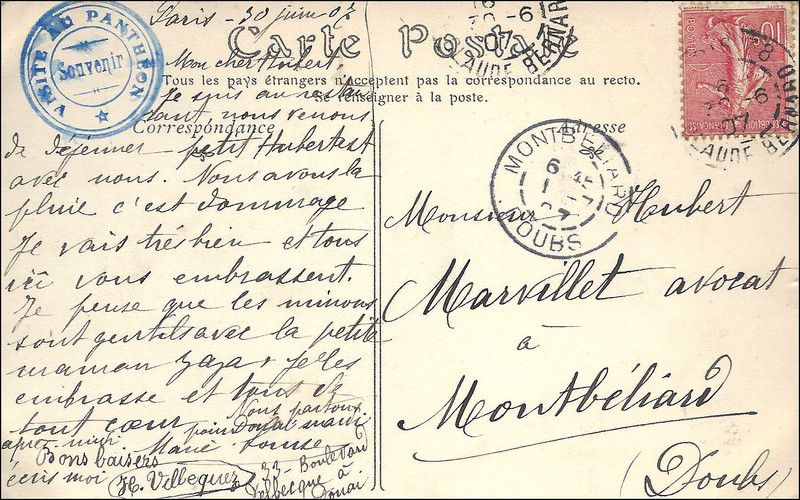 VISITE AU PANTHÉON
Souvenir
Paris - 30 juin 07
Carte Postale
Tous les pays étrangers n'acceptent pas la correspondance au recto.
Se renseigner à la poste.
Correspondance
Adresse
Mon cher Hubert,
Je suis au restau
rant, nous venons
de déjeuner petit Hubert est
avec nous. Nous avons la
pluie c'est dommage
Je vais très bien et tous
ici vous embrassent.
Je pense que les minous
sont gentils avec la petite
maman Zaza, je les
embrasse et tous de
tout cœur
Marie Louise
Nous partons
pour Douai mardi
après midi
Bons baisers
écris moi
H. Villequez
33 - Boulevard
à
Douai
Monsieur Hubert
Marvillet avocat
à
Montbéliard
(Doubs)
MONTBELIARD
6 45
DOUBS
CLAUDE BERNARD
07
10
POSTES
CLAUDE BERNARD
07